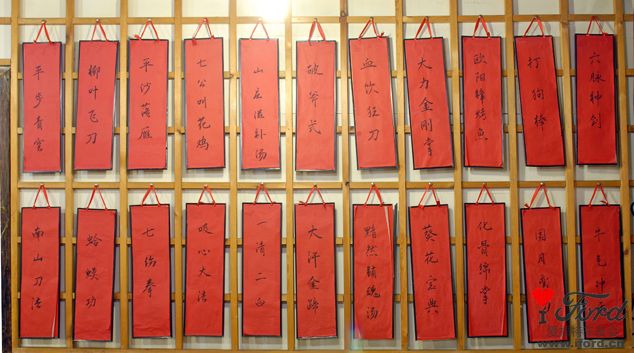 平步青
柳叶飞刀
平沙落雁
七公叫花鸡
山庄滋补汤
破斧式
血饮狂刀
大力金刚掌
欧阳锋烤鱼
打狗棒
六脉神剑
南山刀法
蛤蟆功
七伤拳
吸心大法
一清二白
大汗金蹄
黯然销魂汤
葵花宝典
化骨绵掌
圆月
牛气冲
iFord
www.iford.cn